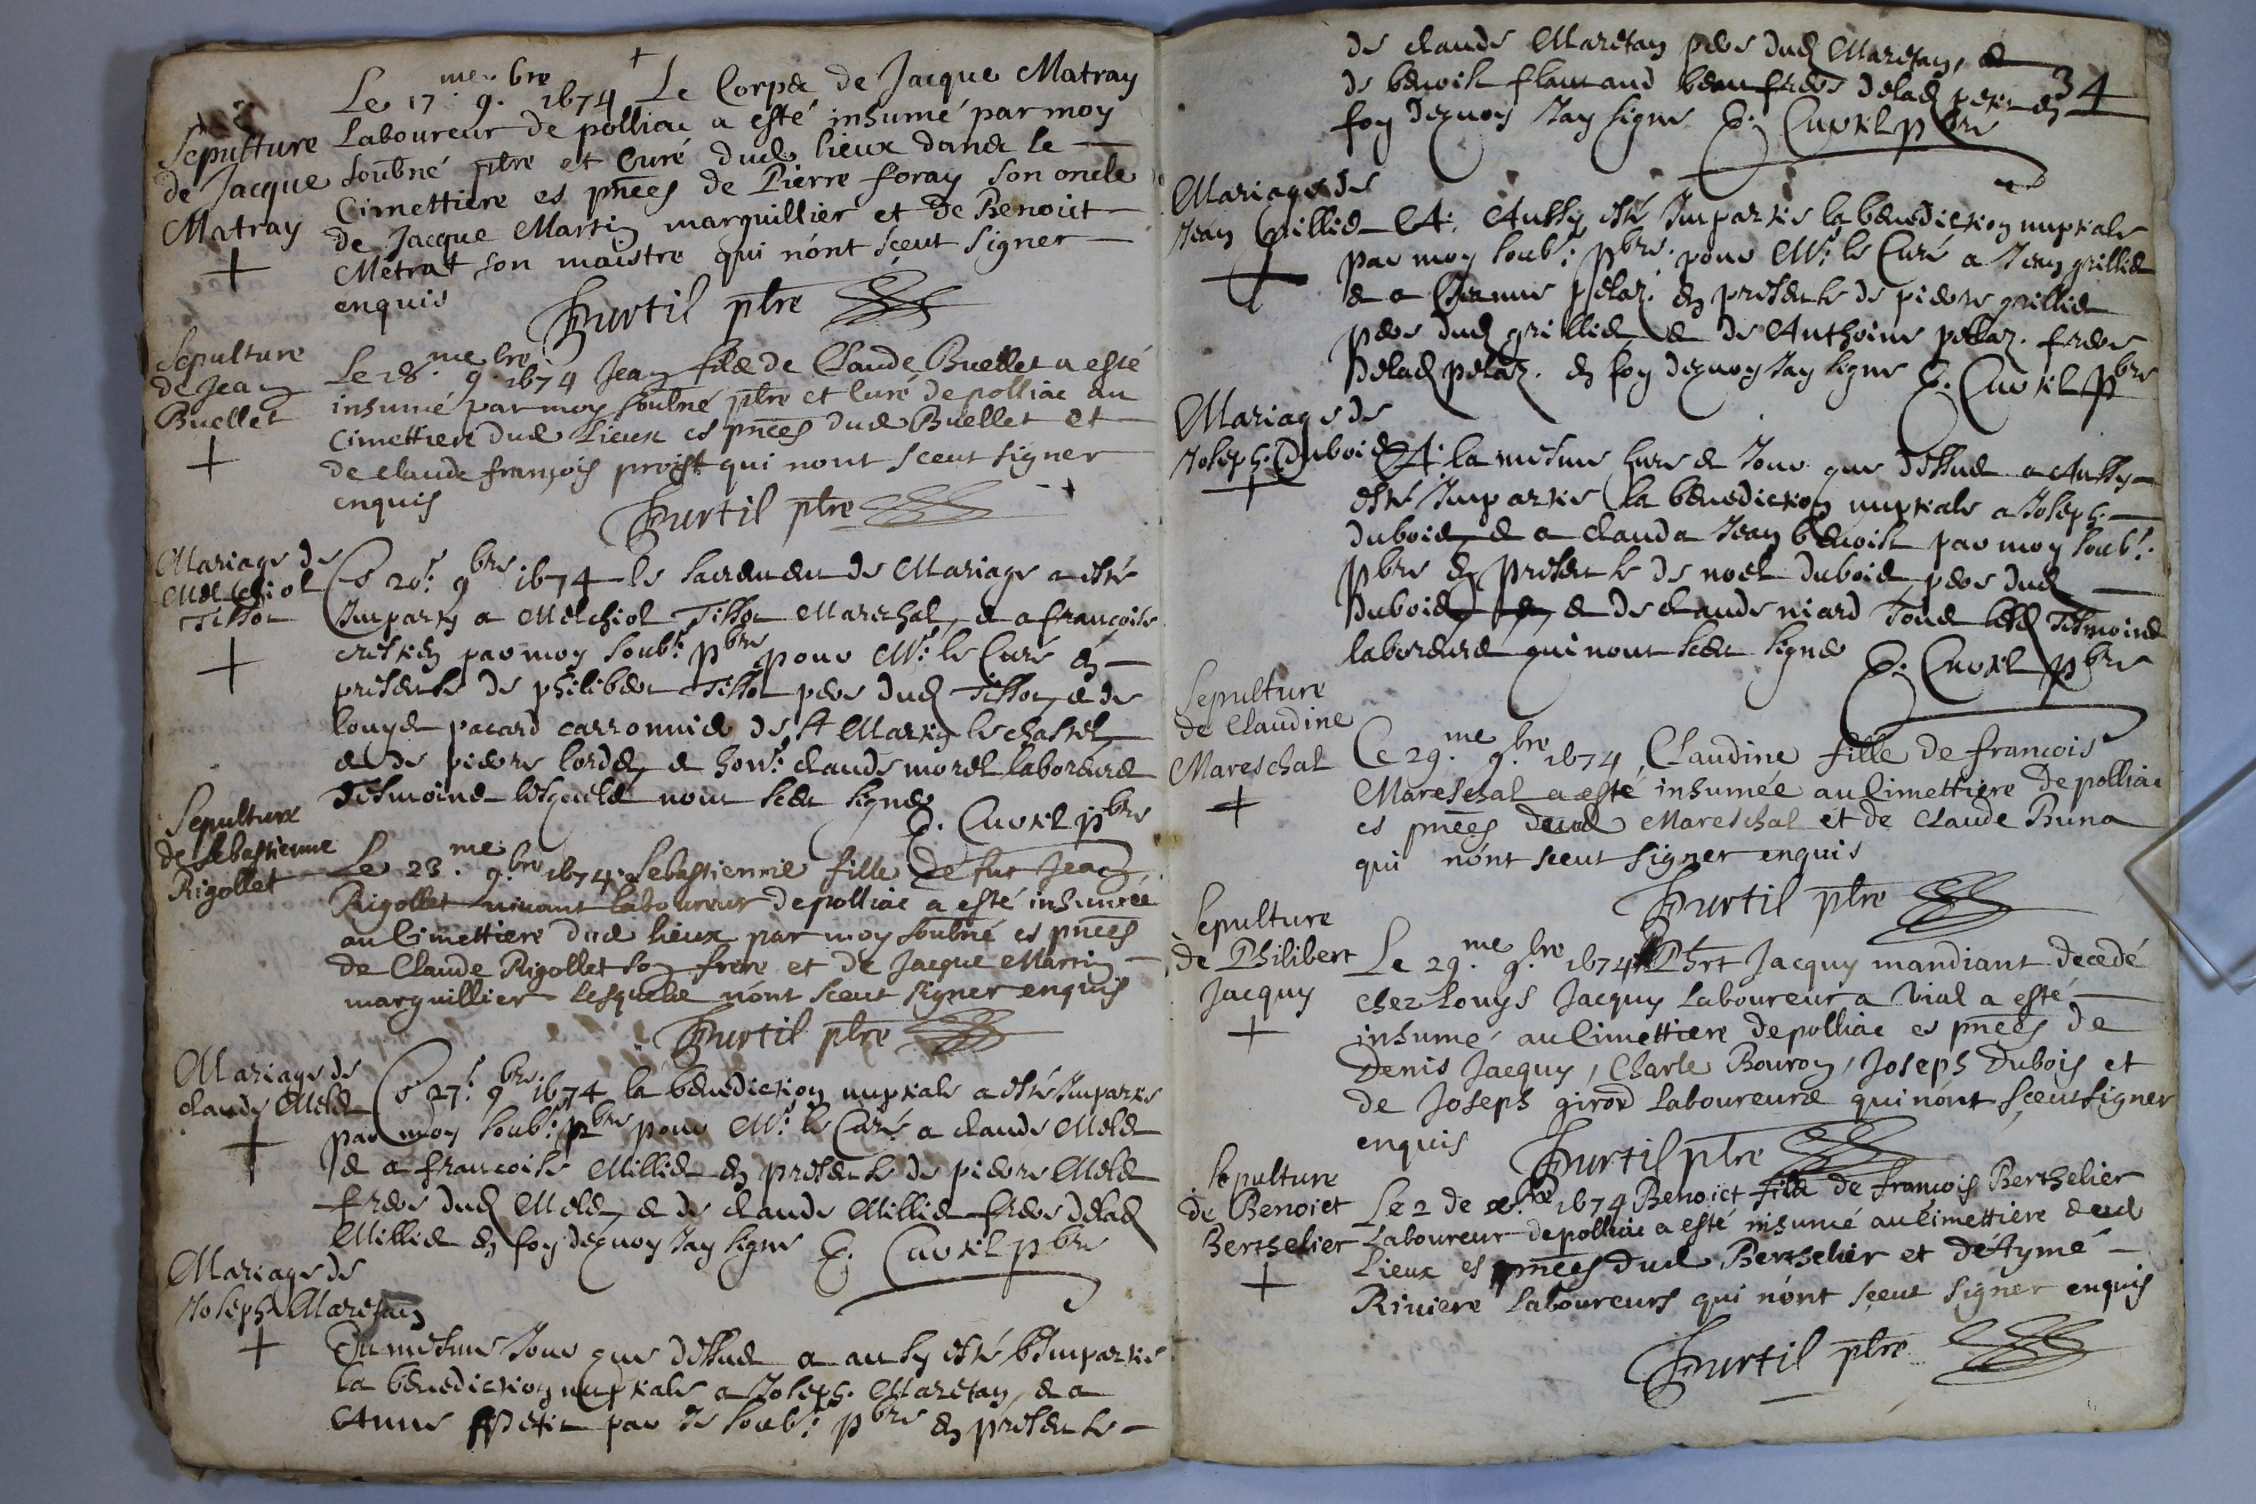 Sepulture
de Jacque
Matray
Le 17.me 9.bre 1674 Le Corps de Jacque Matray
Laboureur de polliac a esté inhumé par moy
soubné ptre et Curé dud lieux dans le
Cimettiere es pnces de Pierre foray son oncle
de Jacque Martin marguillier et de Benoict
Metrat son maistre qui n'ont sceut signer
enquis
Curtil ptre
Sepulture
de Jean
Buellet
Le 18.me 9.bre 1674 Jean fils de Claude Buellet a esté
inhumé par moy soubné ptre et Curé de polliac au
Cimettiere dud Lieux es pnces dud Buellet et
de Claude françois proist qui nont sceut signer
enquis
Curtil ptre
Mariage de
Melchiol
Tissot
Ce 20.e 9bre 1674 le sacrement de Mariage a esté
Imparty a Melchiol Tissot Mareschal, et a françoise
par moy soub.é pbre pour Mr. le Curé en
presence de philibert Tissot pere dud Tissot, et de
louys pacard carronnier de St Martin le chastel,
et de pierre et hon.e claude morel laboreurs
tesmoins lesquels nont sceu signer
C. Curtil pbre
Sepulture
de Sebastienne
Rigollet
Le 23.me 9.bre 1674 Sebastienne fille de fut Jean
Rigollet vivant Laboureur de polliac a esté inhumée
au Cimettiere dud lieux par moy soubné es pnces
de Claude Rigollet son frere et de Jacque Martin
marguillier lesquels n'ont sceut signer enquis
Curtil ptre
Mariage de
claude
Ce 27.e 9bre 1674 la benediction nuptiale a esté Impartie
par moy soub.é pbre pour Mr. le Curé a claude
et a françoise Millier en presence de pierre
frere dud et de claude Millier frere delad
Millier en foy dequoy Jay signe C. Curtil pbre
Mariage de
Joseph Maretan
Du mesme Jour que dessus a aussy esté Impartie
la benediction nuptiale a Joseph Maretan, et a
Anne petit par Je soub.é pbre en presence
34
de claude Maretan pere dud Maretan, et
de benoist flamand beaufrere delad petit en
foy dequoy Jay signe C. Curtil pbre
Mariage de
Jean Grillier
A. Aussy esté Impartie la benediction nuptiale
par moy soub.é pbre pour Mr. le Curé a Jean grillier
et a Jeanne pelaz en presence de pierre grillier
pere dud grillier et de Anthoine pelaz frere
delad pelaz. en foy dequoy Jay signe C. Curtil pbre
Mariage de
Joseph Dubois
A la mesme hure et Jour que dessus a Aussy
esté Impartie la benediction nuptiale a Joseph
dubois, et a clauda Jean benoist par moy soub.é
pbre en presence de noel dubois pere dud
dubois et de claude niard tous tesmoins
laboreurs qui nont sceu signe C. Curtil pbre
Sepulture
de Claudine
Mareschal
Ce 29.me 9.bre 1674 Claudine fille de francois
Mareschal a esté inhumée au Cimettiere de polliac
es pnces dud Mareschal et de Claude Buna
qui n'ont sceut signer enquis
Curtil ptre
Sepulture
de Philibert
Jacquy
Le 29.me 9.bre 1674 Phrt Jacquy mandiant decedé
chez Louys Jacquy Laboureur a Vial a esté
inhumé au Cimettiere de polliac es pnces de
Denis Jacquy, Charle Bouron, Joseph Dubois et
de Joseph girod Laboureurs qui n'ont sceut signer
enquis
Curtil ptre
Sepulture
de Benoict
Berthelier
Le 2 de 1674 Benoict fils de francois Berthelier
Laboureur de polliac a esté inhumé au Cimettiere dud
Lieux es pnces dud Berthelier et d'Aymé
Riviere Laboureurs qui n'ont sceut signer enquis
Curtil ptre